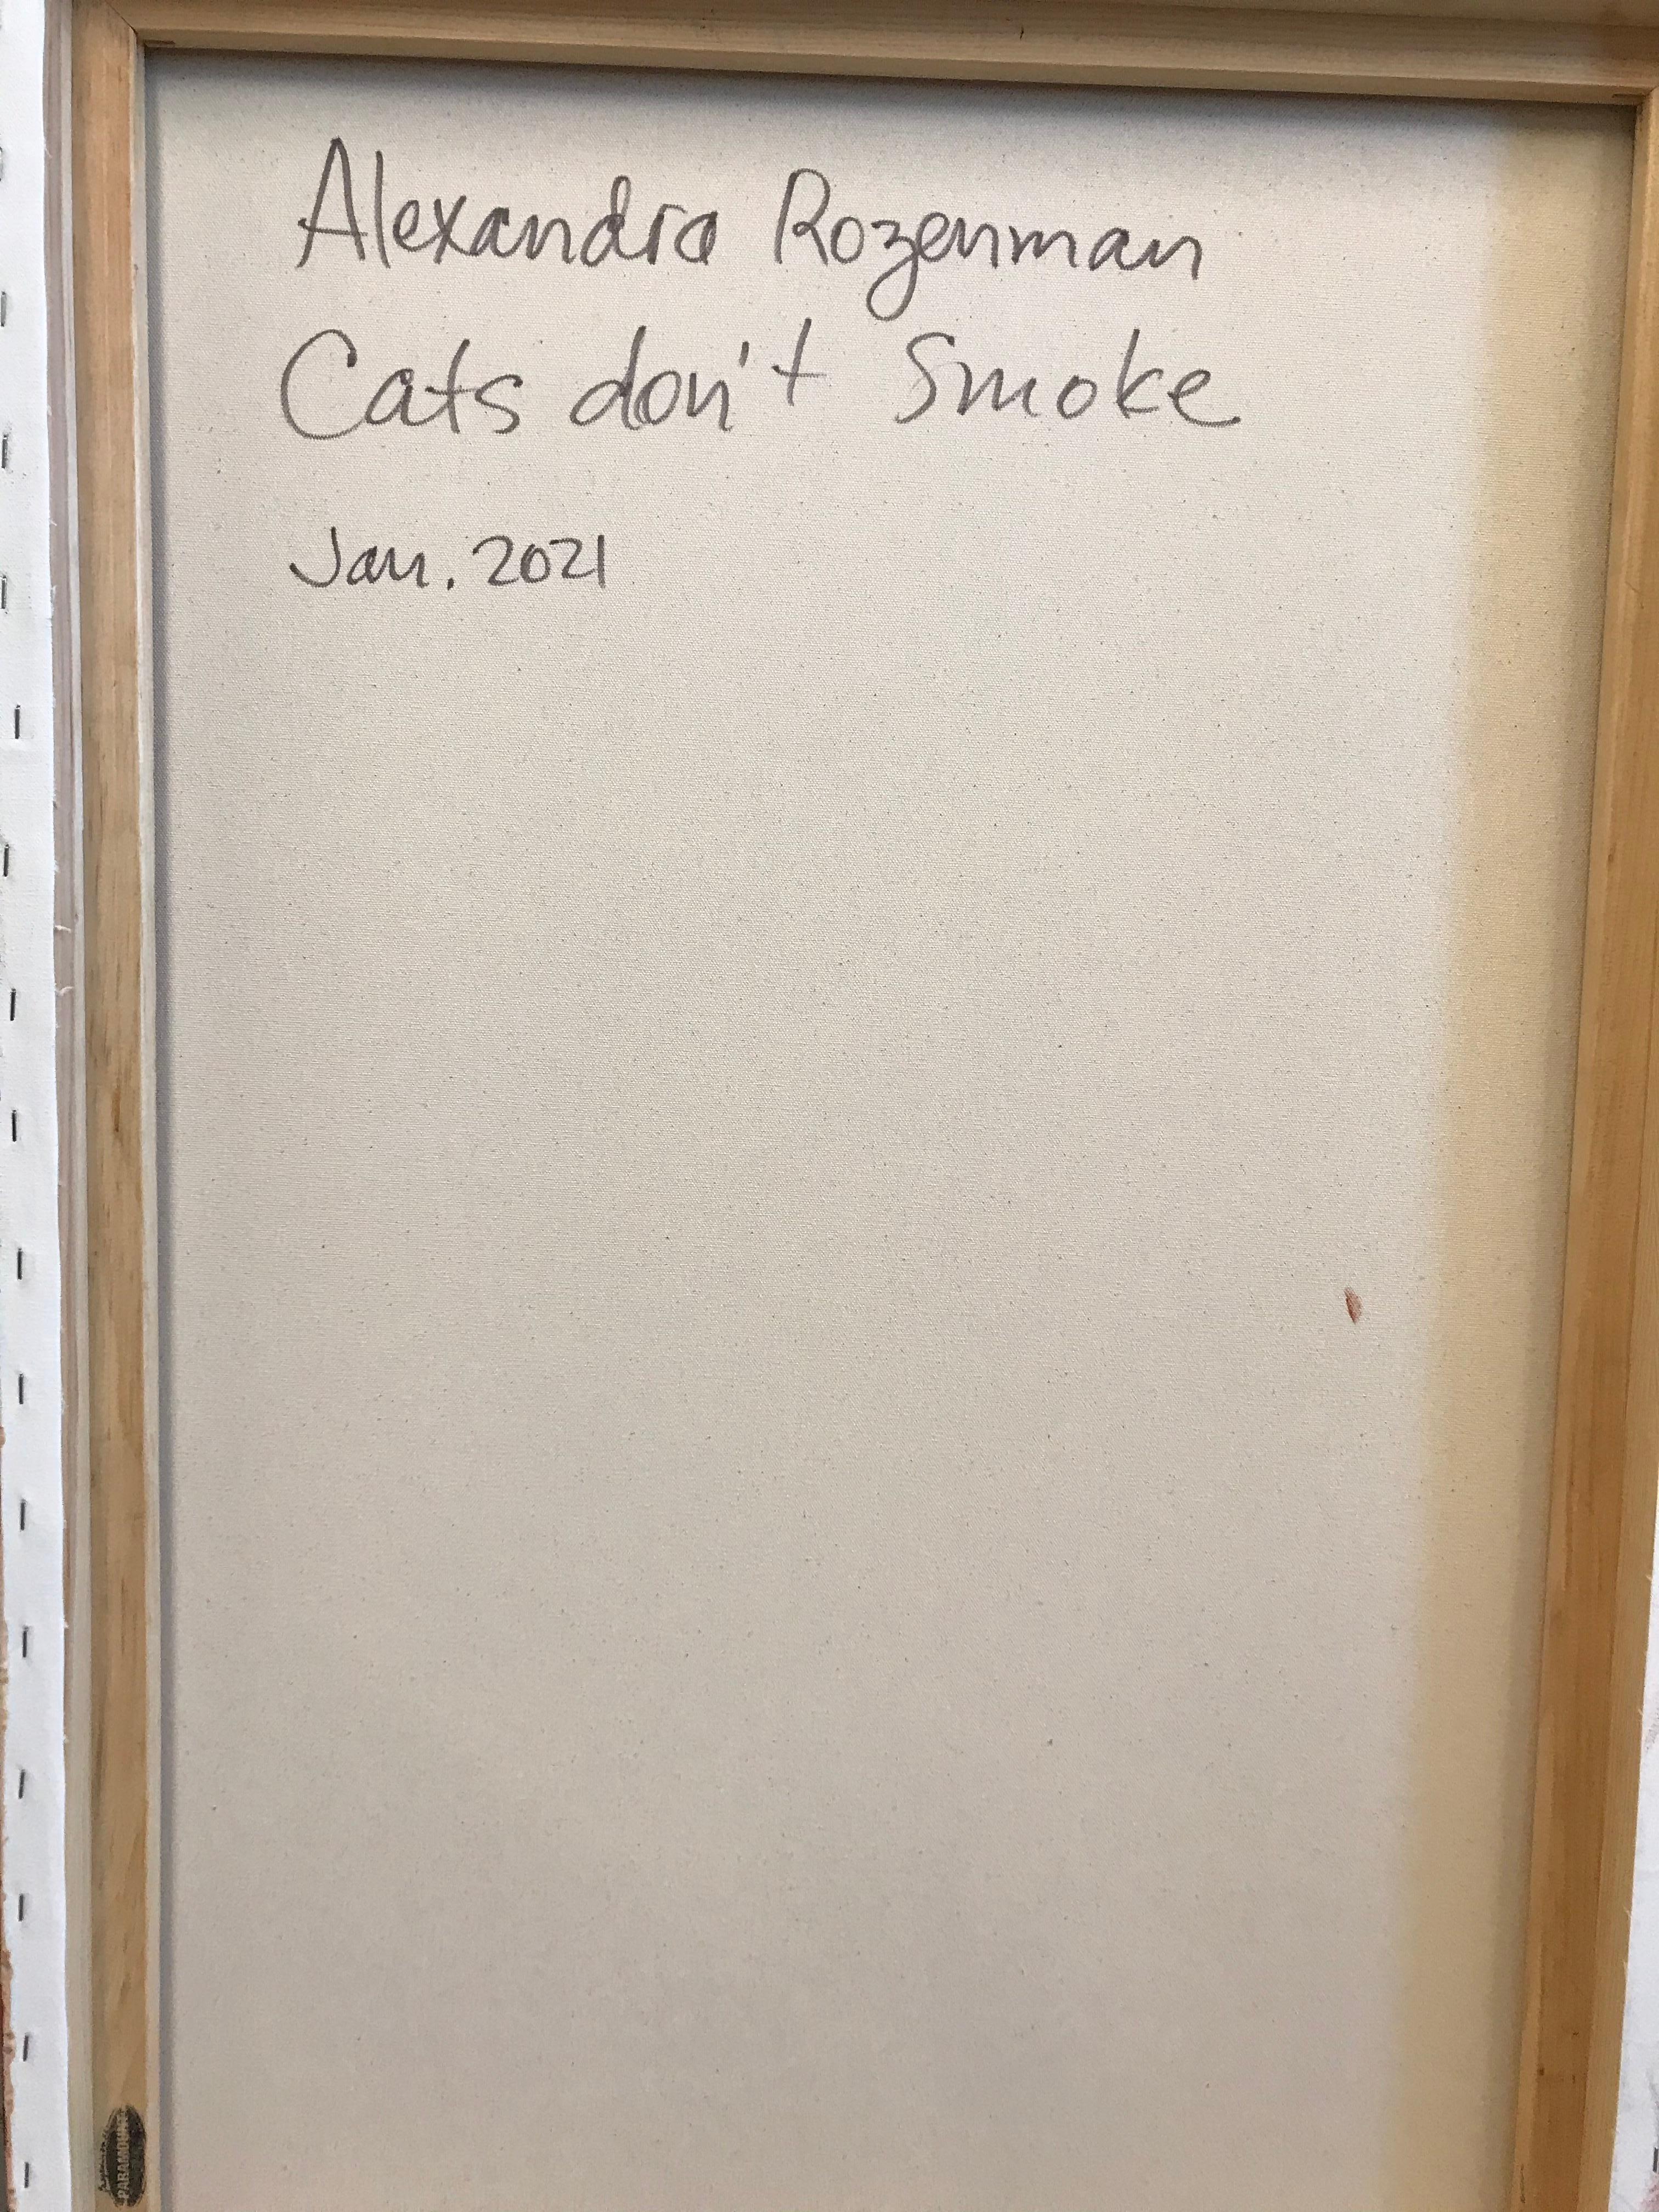 Alexandra Rozenman
Cats don't Smoke
Jan. 2021
PARAMOUNT